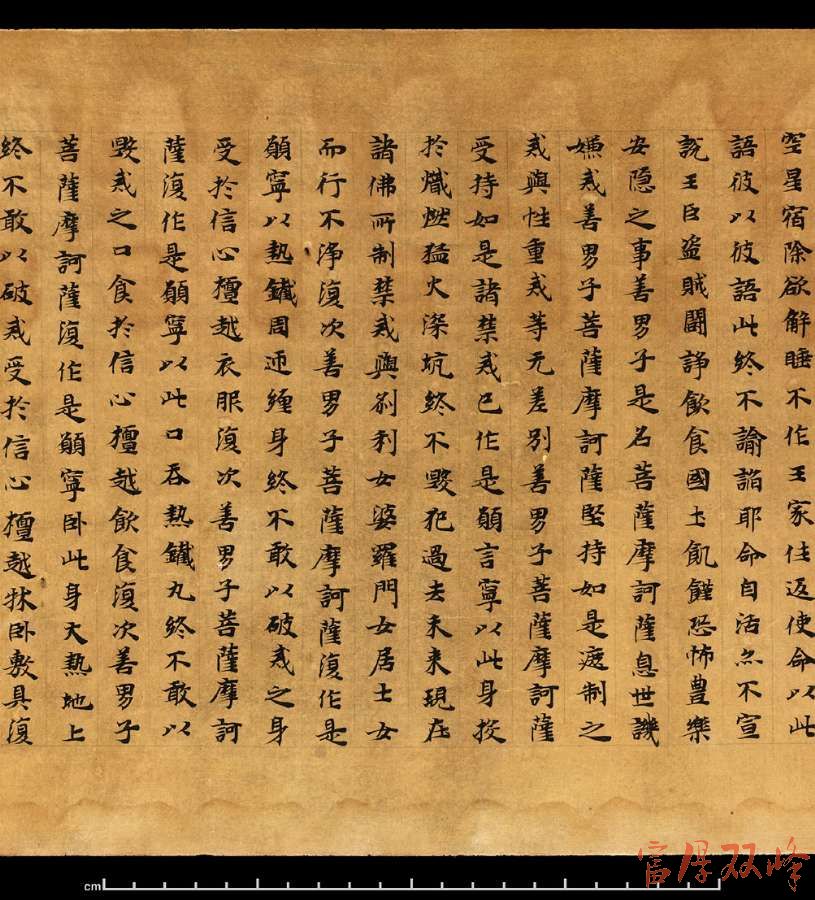 空星宿除欲解睡不作王家住返使命以此
語彼以彼語此終不諭諂耶命自活点不宣
説王臣盜賊鬪諍飲食國土飢饉恐怖豊樂
安隱之事善男子是名菩薩摩訶薩息世譏
嫌戒善男子菩薩摩訶薩堅持如是遮制之
戒與性重戒等无差別善男子菩薩摩訶薩
受持如是諸禁戒已作是願言寧以此身投
於熾燃猛火深坑終不毀犯過去未來現在
諸佛所制禁戒與刹利女婆羅門女居士女
而行不淨復次善男子菩薩摩訶薩復作是
願寧以熱鐵周迊纏身終不敢以破戒之身
受於信心檀越衣服復次善男子菩薩摩訶
薩復作是願寧以此口吞熱鐵丸終不敢以
毀戒之口食於信心檀越飲食復次善男子
菩薩摩訶薩復作是願寧卧此身大熱地上
終不敢以破戒受於信心檀越牀卧敷具復
cm
富厚双峰